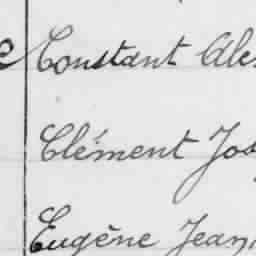 Constant Ale
Clément Jos
Eugène Jean